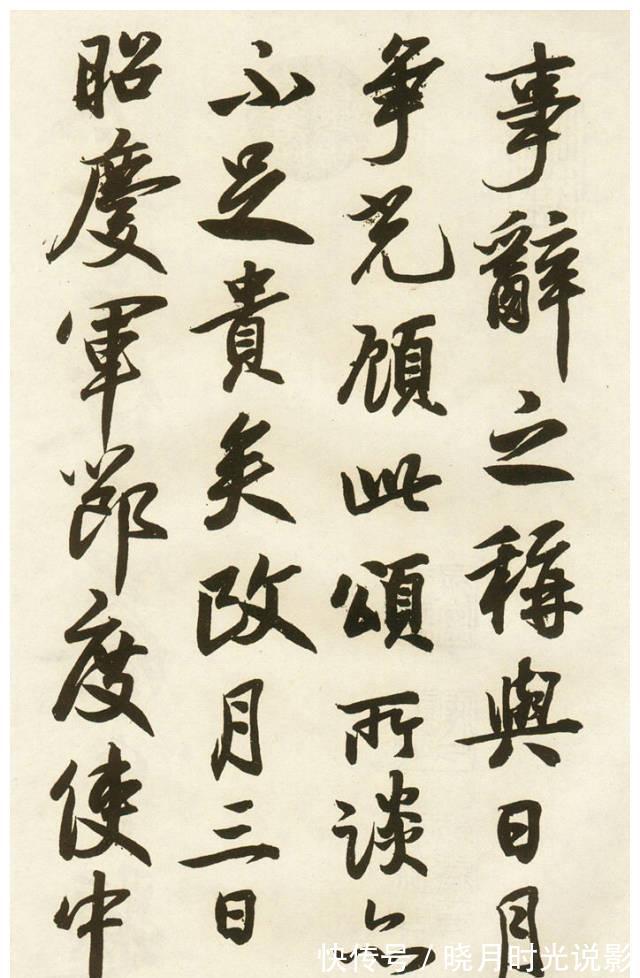 事辭之稱與日月
爭光顧此頌所談亦
不足貴矣政月三日
昭慶軍節度使中
快传号 / 晓月时光说影